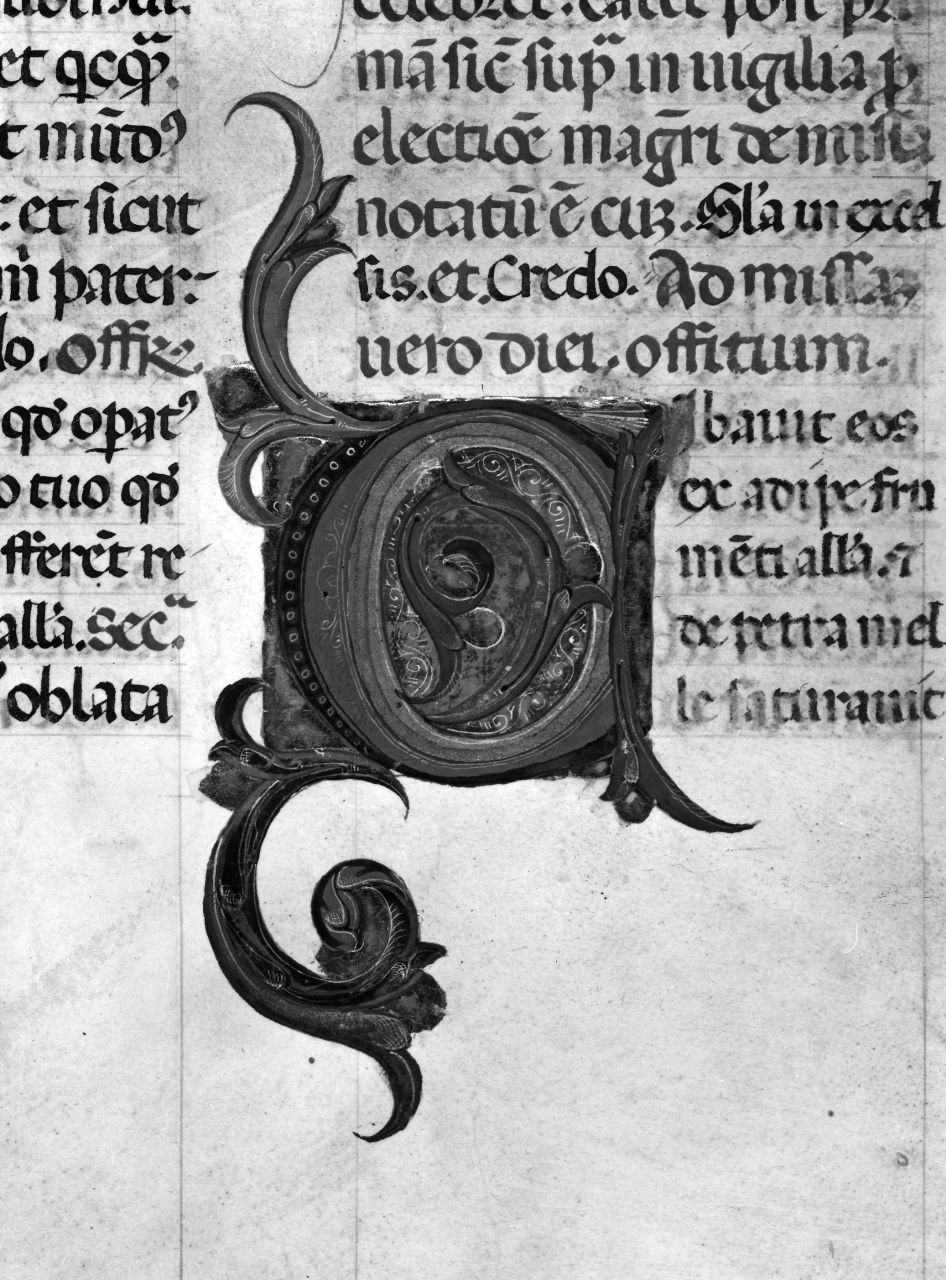 et qcqꝫ̃.
t mūdꝰ
et sicut
m̃ pater
lo. offic̃.
qđ opatꝰ
o tuo qđ
fferēt re
all'a. Secͣ.
oblata
celebret. post pͥ.
mā sic̄ supͣ in uigilia ꝑ
electiōe mag̃ri de missa
notatū ē cuꝫ. Gl'a in excel
sis. et. Credo. Ad missaꝫ
uero diei. offitium.
Cibauit eos
ex adipe fru
mēti all'a. ⁊
de petra mel
le saturauit